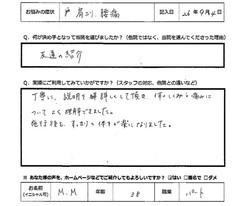 お悩みの症状 肩こり、腰痛 記入日 26年9月4日
Q. 何が決め手となって当院を選びましたか?(他院ではなく、当院を選んでくださった理由)
友達の紹介
Q. 実際にご利用してみていかがですか?(スタッフの対応、他院との違いなど)
丁寧に、説明や解説をして頂き、体のしくみや痛みに
ついてよく理解できました。
施術後も、すっきりと体が楽になりました。
※ あなた様の声を、ホームページなどでご紹介してもよろしいですか? はい 匿名で ダメ
お名前 (イニシャル可) M.M 年齢 38 職業 パート